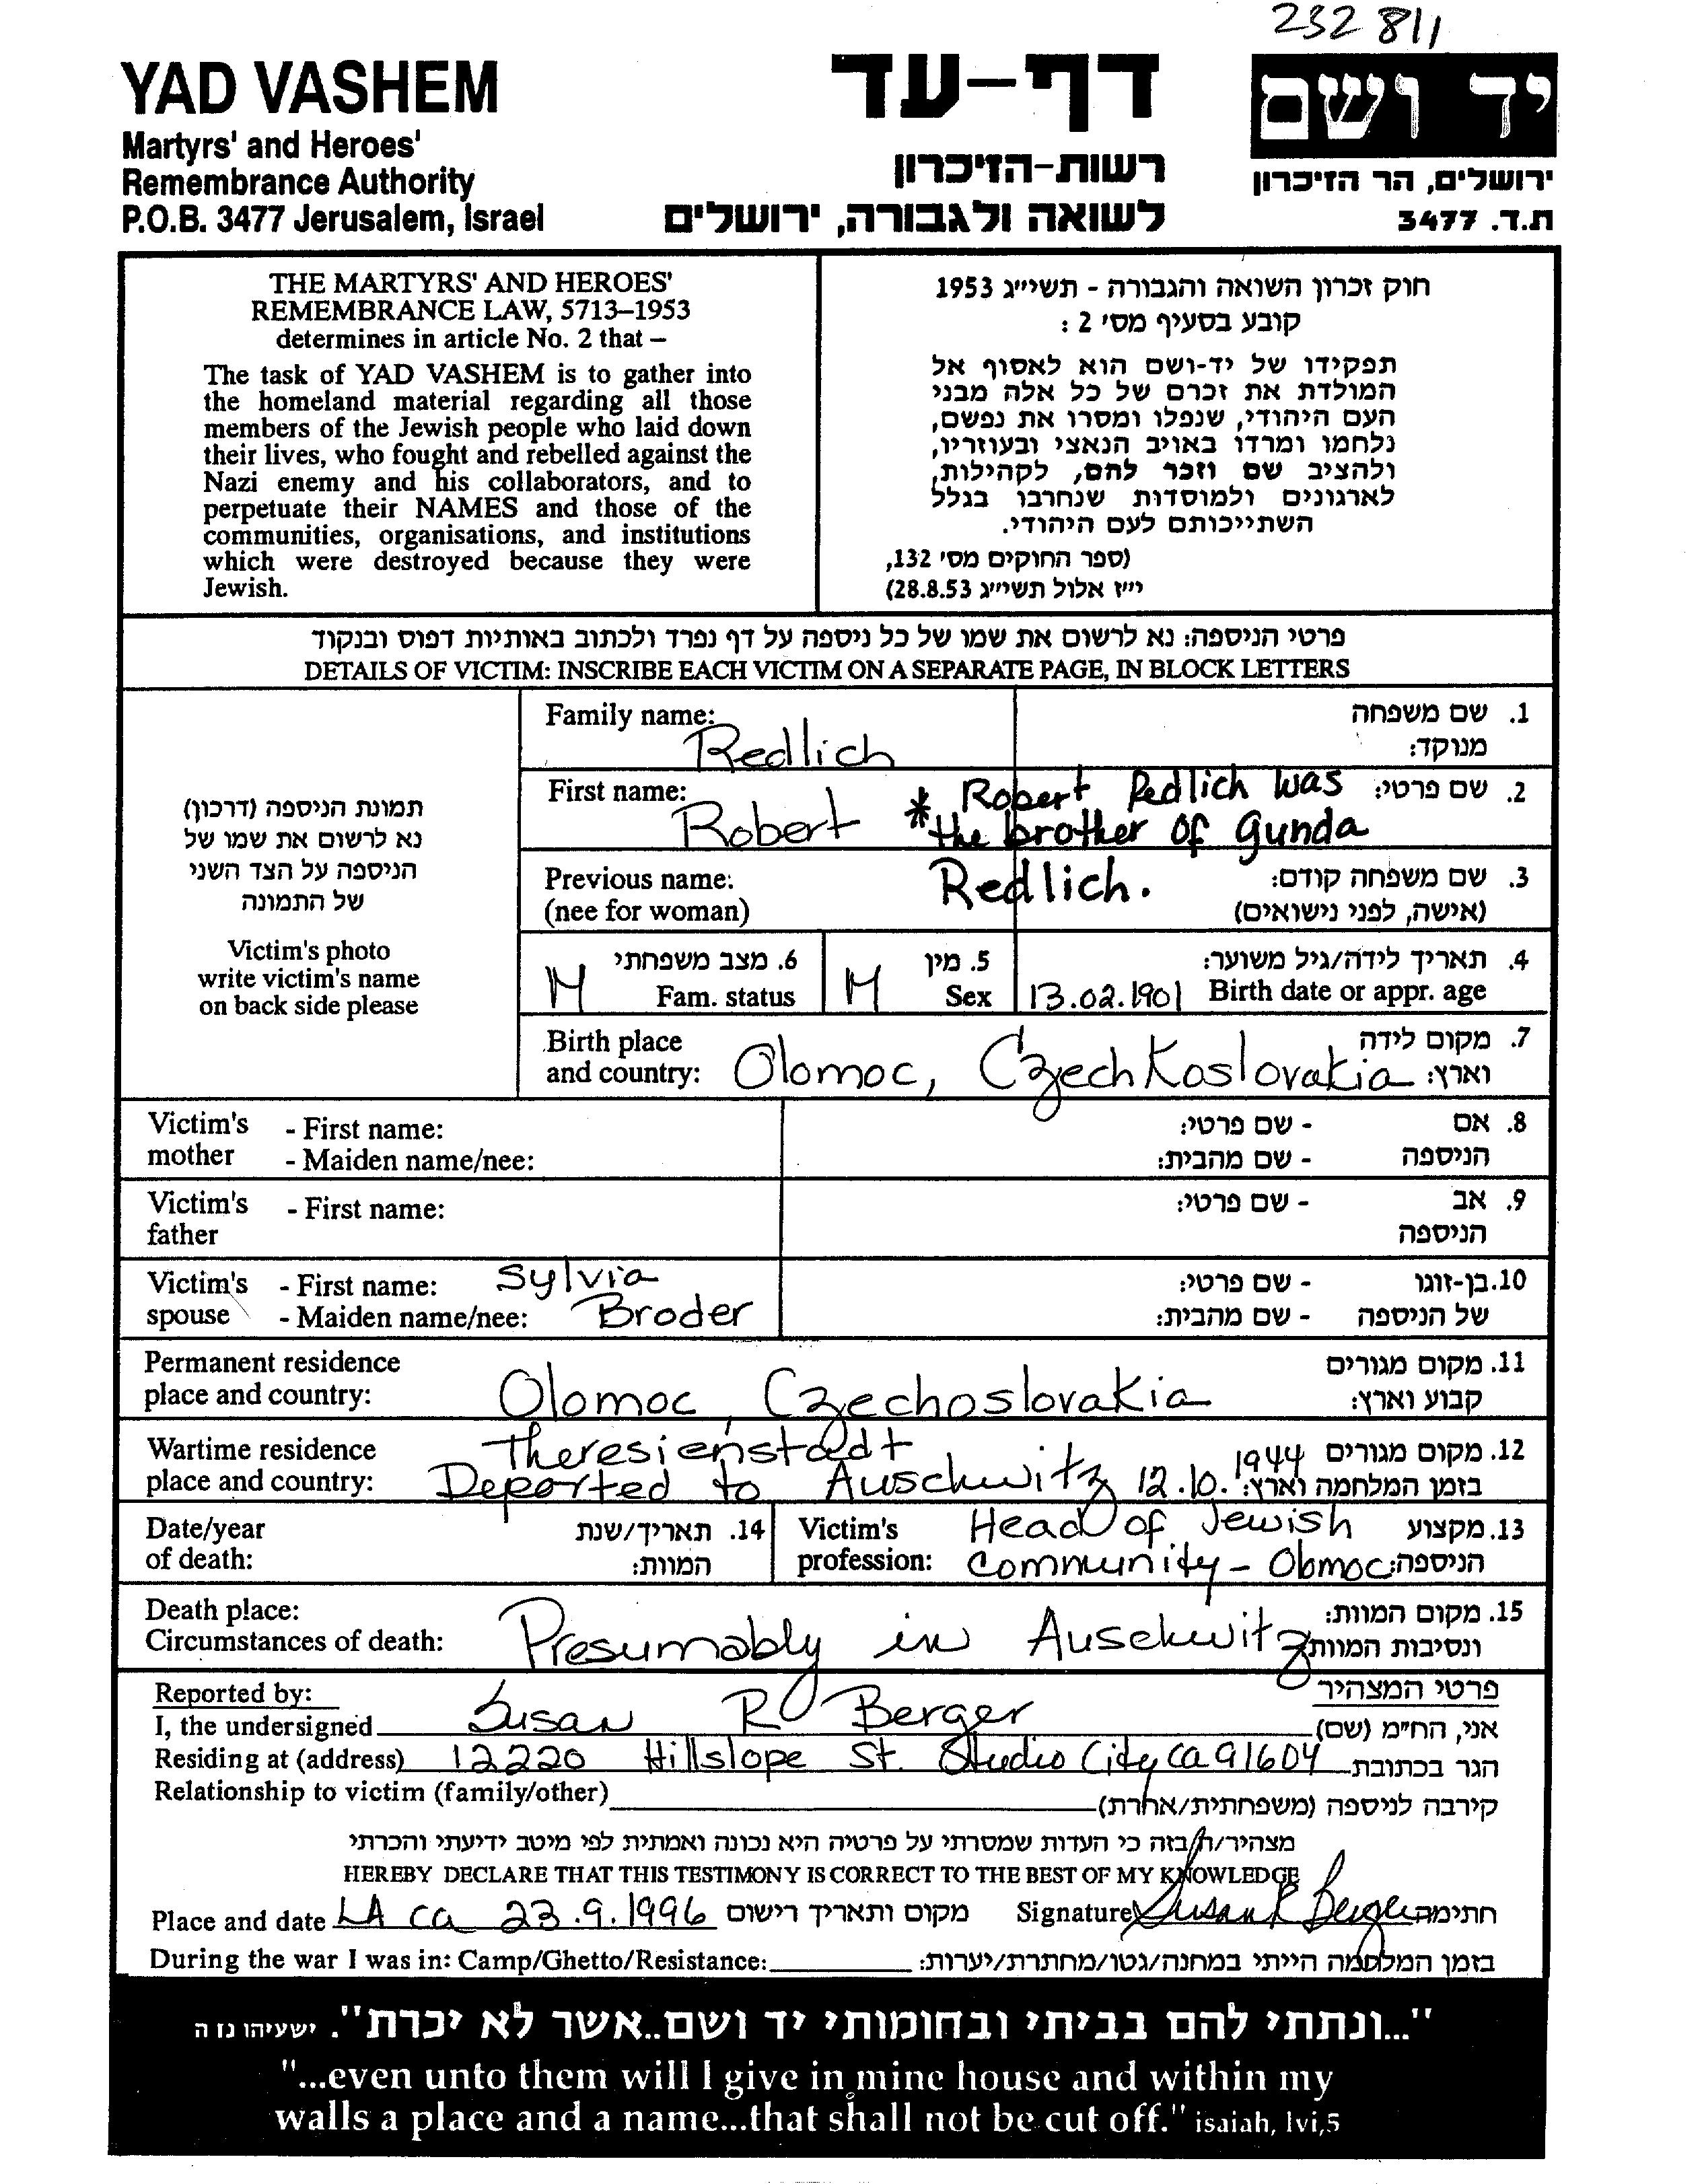 232 811
YAD VASHEM
Martyrs' and Heroes'
Remembrance Authority
P.O.B. 3477 Jerusalem, Israel
דף-עד
רשות-הזיכרון
לשואה ולגבורה, ירושלים
יד ושם
ירושלים, הר הזיכרון
ת.ד. 3477
THE MARTYRS' AND HEROES'
REMEMBRANCE LAW, 5713–1953
determines in article No. 2 that –
The task of YAD VASHEM is to gather into
the homeland material regarding all those
members of the Jewish people who laid down
their lives, who fought and rebelled against the
Nazi enemy and his collaborators, and to
perpetuate their NAMES and those of the
communities, organisations, and institutions
which were destroyed because they were
Jewish.
חוק זכרון השואה והגבורה - תשי״ג 1953
קובע בסעיף מס׳ 2 :
תפקידו של יד-ושם הוא לאסוף אל
המולדת את זכרם של כל אלה מבני
העם היהודי, שנפלו ומסרו את נפשם,
נלחמו ומרדו באויב הנאצי ובעוזריו,
ולהציב שם וזכר להם, לקהילות,
לארגונים ולמוסדות שנחרבו בגלל
השתייכותם לעם היהודי.
(ספר החוקים מס׳ 132,
י״ז אלול תשי״ג 28.8.53)
פרטי הניספה: נא לרשום את שמו של כל ניספה על דף נפרד ולכתוב באותיות דפוס ובנקוד
DETAILS OF VICTIM: INSCRIBE EACH VICTIM ON A SEPARATE PAGE, IN BLOCK LETTERS
תמונת הניספה (דרכון)
נא לרשום את שמו של
הניספה על הצד השני
של התמונה
Victim's photo
write victim's name
on back side please
Family name: Redlich 1. שם משפחה
מנוקד:
First name: Robert 2. שם פרטי:
* Robert Redlich was
the brother of Gunda
Redlich.
Previous name: 3. שם משפחה קודם:
(nee for woman) (אישה, לפני נישואים)
M 6. מצב משפחתי
Fam. status
M 5. מין
Sex
13.02.1901 4. תאריך לידה/גיל משוער:
Birth date or appr. age
Birth place 7. מקום לידה
and country: Olomoc, CzechKoslovakia וארץ:
Victim's - First name: - שם פרטי: 8. אם
mother - Maiden name/nee: - שם מהבית: הניספה
Victim's - First name: - שם פרטי: 9. אב
father הניספה
Victim's - First name: Sylvia - שם פרטי: 10. בן-זוגו
spouse - Maiden name/nee: Broder - שם מהבית: של הניספה
Permanent residence 11. מקום מגורים
place and country: Olomoc, Czechoslovakia קבוע וארץ:
Wartime residence Theresienstadt 12. מקום מגורים
place and country: Deported to Auschwitz 12.10.1944 בזמן המלחמה וארץ:
Date/year 14. תאריך/שנת
of death: המוות:
Victim's Head of Jewish 13. מקצוע
profession: Community - Olomoc הניספה:
Death place: 15. מקום המוות:
Circumstances of death: Presumably in Auschwitz ונסיבות המוות
Reported by: פרטי המצהיר
I, the undersigned Susan R Berger אני, הח״מ (שם)
Residing at (address) 12220 Hillslope St. Studio City Ca 91604 הגר בכתובת
Relationship to victim (family/other) קירבה לניספה (משפחתית/אחרת)
מצהיר/ה בזה כי העדות שמסרתי על פרטיה היא נכונה ואמתית לפי מיטב ידיעתי והכרתי
HEREBY DECLARE THAT THIS TESTIMONY IS CORRECT TO THE BEST OF MY KNOWLEDGE
Place and date LA Ca 23.9.1996 מקום ותאריך רישום Signature Susan R Berger חתימה
During the war I was in: Camp/Ghetto/Resistance: בזמן המלחמה הייתי במחנה/גטו/מחתרת/יערות:
"...ונתתי להם בביתי ובחומותי יד ושם..אשר לא יכרת". ישעיהו נו ה
"...even unto them will I give in mine house and within my
walls a place and a name...that shall not be cut off." isaiah, lvi,5